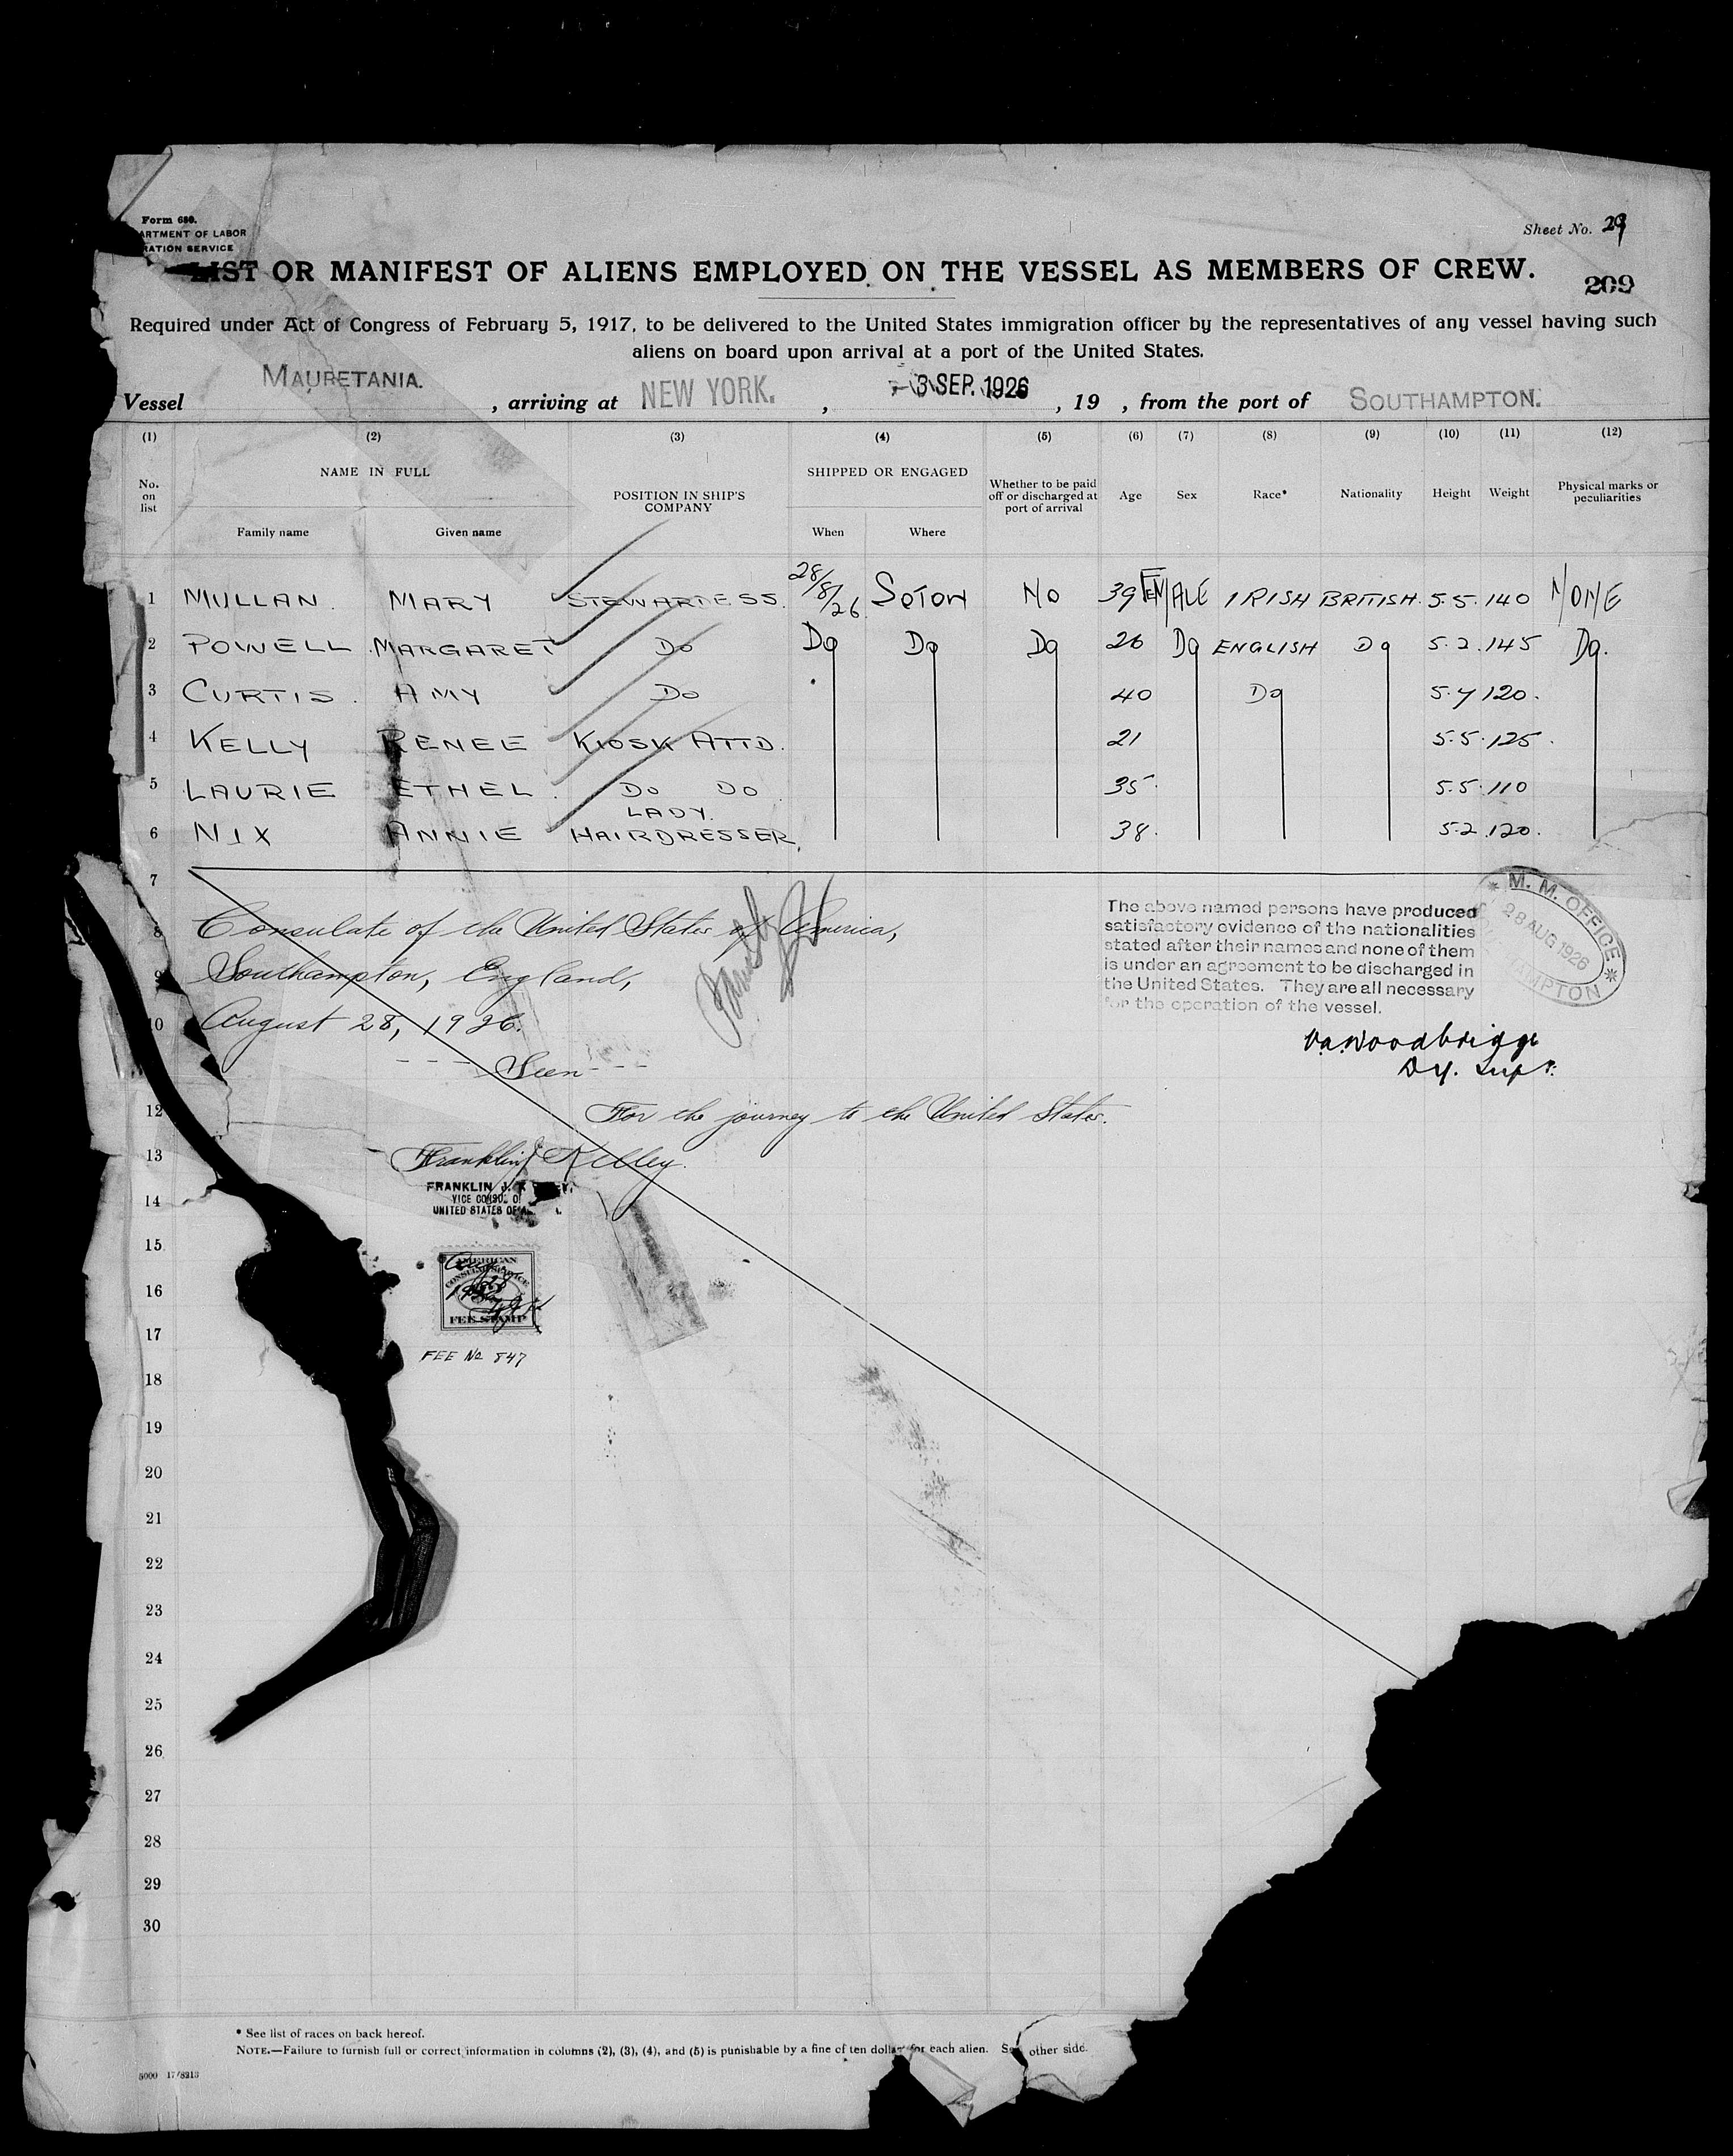 Form 680.
ARTMENT OF LABOR
RATION SERVICE
Sheet No. 29
LIST OR MANIFEST OF ALIENS EMPLOYED ON THE VESSEL AS MEMBERS OF CREW.
209
Required under Act of Congress of February 5, 1917, to be delivered to the United States immigration officer by the representatives of any vessel having such
aliens on board upon arrival at a port of the United States.
Vessel MAURETANIA. , arriving at NEW YORK. , -3 SEP. 1926 , 19 , from the port of SOUTHAMPTON.
(1) (2) (3) (4) (5) (6) (7) (8) (9) (10) (11) (12)
No. on list NAME IN FULL POSITION IN SHIP'S COMPANY SHIPPED OR ENGAGED Whether to be paid off or discharged at port of arrival Age Sex Race* Nationality Height Weight Physical marks or peculiarities
Family name Given name When Where
1 MULLAN. MARY STEWARDESS. 28/8/26 SOTON NO 39 FEMALE IRISH BRITISH. 5.5. 140 NONE
2 POWELL. MARGARET DO DO DO DO 26 DO ENGLISH DO 5.2. 145 DO.
3 CURTIS. AMY DO 40 DO 5.7 120.
4 KELLY RENEE KIOSK ATTD. 21 5.5. 125.
5 LAURIE ETHEL. DO DO 35. 5.5. 110
6 NIX ANNIE LADY. HAIRDRESSER. 38. 5.2. 120.
7
8 Consulate of the United States of America,
9 Southampton, England,
10 August 28, 1926.
Seen
12 For the journey to the United States.
The above named persons have produced
satisfactory evidence of the nationalities
stated after their names and none of them
is under an agreement to be discharged in
the United States. They are all necessary
for the operation of the vessel.
M. M. OFFICE
28 AUG 1926
HAMPTON
Woodbridge
Dy. Supt.
13 Franklin J Kelley.
FRANKLIN J. K
VICE CONSUL OF
UNITED STATES OF A
14
15
16
17
AMERICAN
CONSULAR SERVICE
FEE STAMP
FEE No 847
18
19
20
21
22
23
24
25
26
27
28
29
30
* See list of races on back hereof.
NOTE.—Failure to furnish full or correct information in columns (2), (3), (4), and (5) is punishable by a fine of ten dollars for each alien. See other side.
5000 17/8213